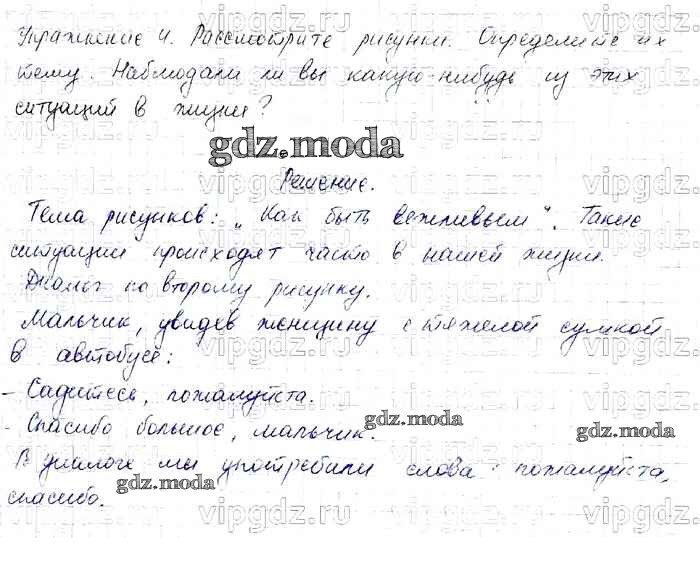 Упражнение 4. Рассмотрите рисунки. Определите их
тему. Наблюдали ли вы какую-нибудь из этих
ситуаций в жизни?
gdz.moda
Решение.
Тема рисунков: „Как быть вежливым“. Такие
ситуации происходят часто в нашей жизни.
Диалог по второму рисунку.
Мальчик, увидев женщину с тяжелой сумкой
в автобусе:
- Садитесь, пожалуйста.
- Спасибо большое, мальчик.
gdz.moda
gdz.moda
В диалоге мы употребили слова: пожалуйста,
gdz.moda
спасибо.
vipgdz.ru